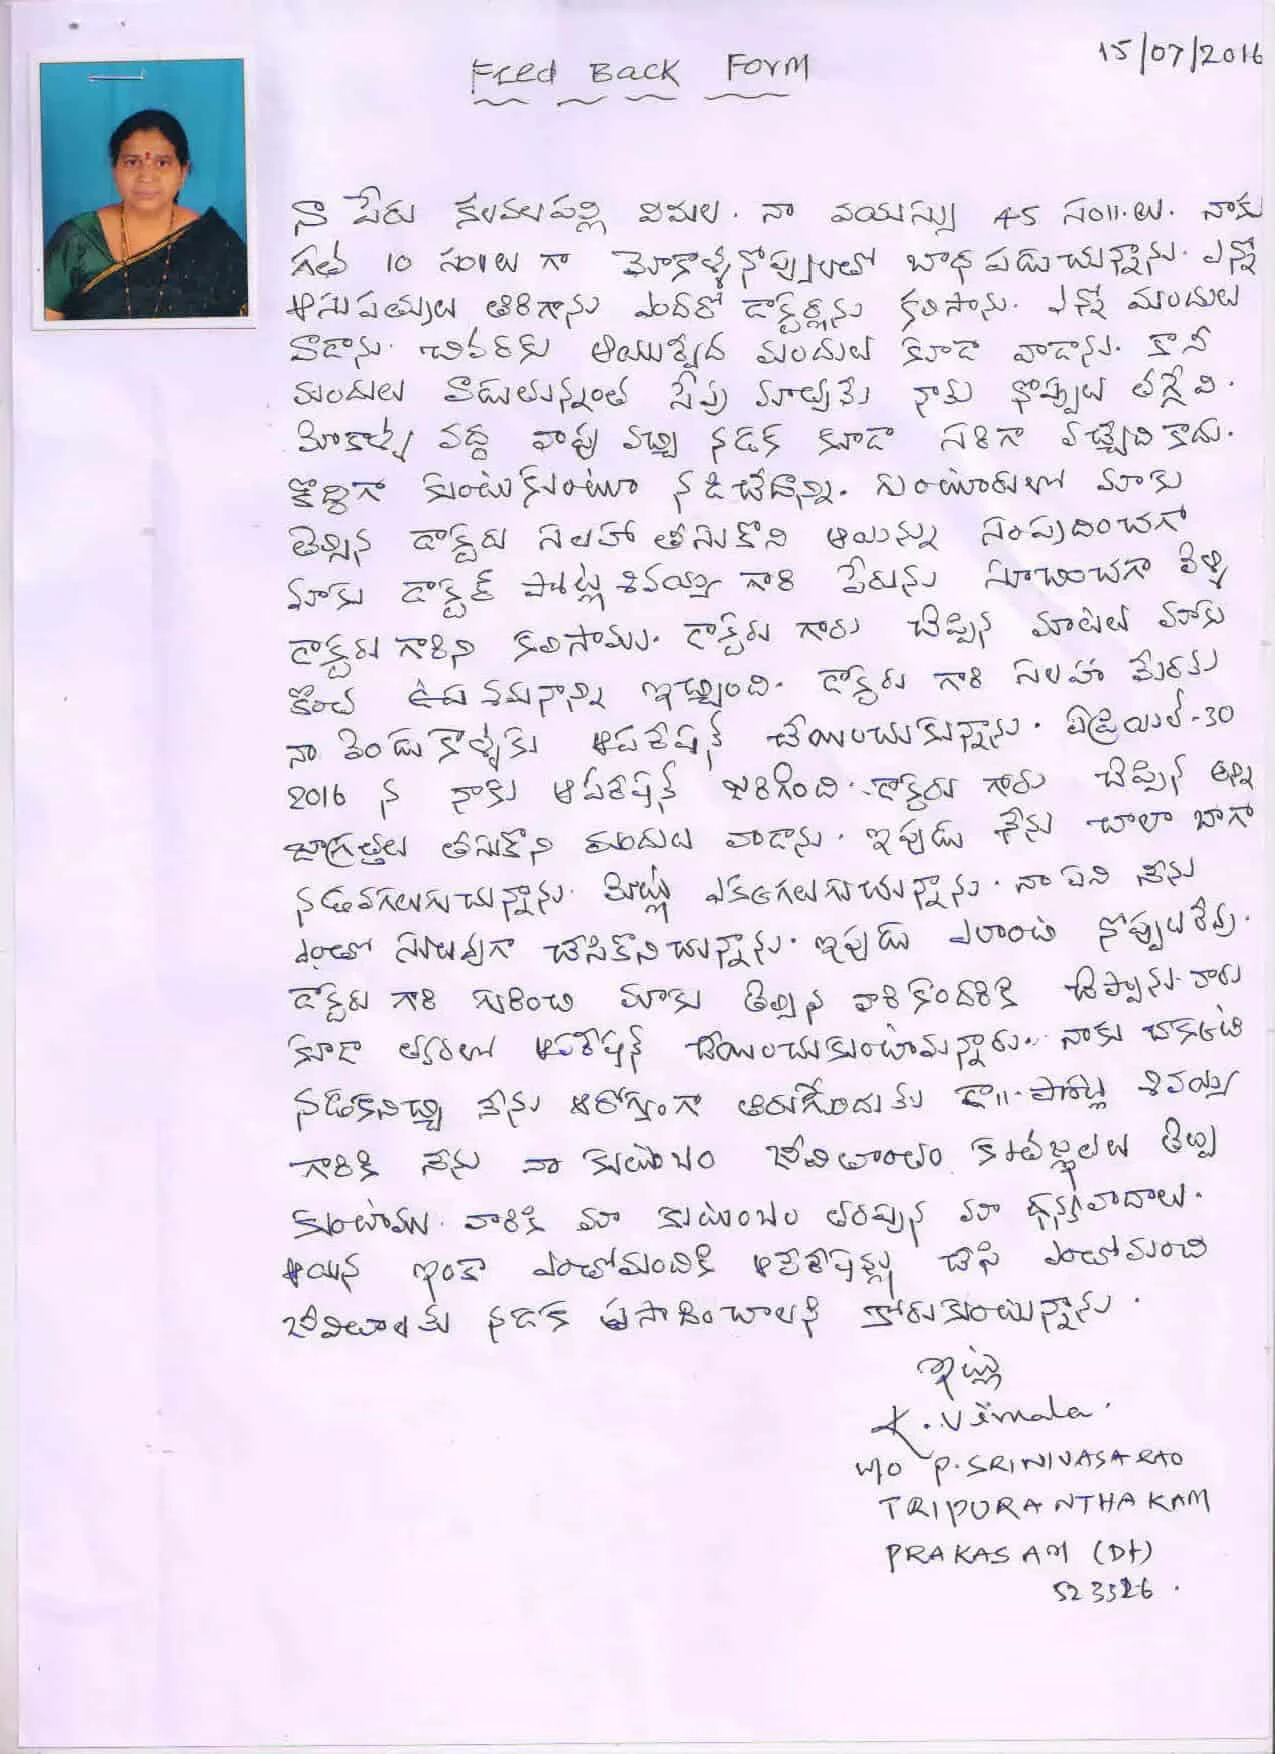 Feed Back Form
15/07/2016
నా పేరు కలవలపల్లి విమల. నా వయస్సు 45 సం॥.లు. నాకు
గత 10 సం॥లు గా మోకాళ్ళనొప్పులతో బాధ పడుచున్నాను. ఎన్నో
ఆసుపత్రులు తిరిగాను ఎందరో డాక్టర్లను కలిసాను. ఎన్నో మందులు
వాడాను. చివరకు ఆయుర్వేద మందులు కూడా వాడాను. కానీ
మందులు వాడుతున్నంత సేపు మాత్రమే నాకు నొప్పులు తగ్గేవి.
మోకాళ్ళ వద్ద వాపు వచ్చి నడక కూడా సరిగా వచ్చేది కాదు.
కొద్దిగా కుంటుకుంటూ నడిచేదాన్ని. గుంటూరులో మాకు
తెల్సిన డాక్టరు సలహా తీసుకొని ఆయన్ను సంప్రదించగా
మాకు డాక్టర్ పోట్ల శివయ్య గారి పేరును సూచించగా వెళ్ళి
డాక్టరు గారిని కలిసాము. డాక్టరు గారు చెప్పిన మాటలు మాకు
కొంత ఉపశమనాన్ని ఇచ్చింది. డాక్టరు గారి సలహా మేరకు
నా రెండు కాళ్ళకు ఆపరేషన్ చేయించుకున్నాను. ఏప్రియల్-30
2016 న నాకు ఆపరేషన్ జరిగింది. డాక్టరు గారు చెప్పిన అన్ని
జాగ్రత్తలు తీసుకొని మందులు వాడాను. ఇప్పుడు నేను చాలా బాగా
నడవగలుగుచున్నాను. మెట్లు ఎక్కగలుగుచున్నాను. నా పని నేను
ఎంతో సులువుగా చేసికొనుచున్నాను. ఇప్పుడు ఎలాంటి నొప్పులు లేవు.
డాక్టరు గారి గురించి మాకు తెల్సిన వారికందరికి చెప్పాను. వారు
కూడా త్వరలో ఆపరేషన్ చేయించుకుంటామన్నారు. నాకు చక్కటి
నడకనిచ్చి నేను ఆరోగ్యంగా తిరుగేందుకు డా॥. పోట్ల శివయ్య
గారికి నేను నా కుటుంబం జీవితాంతం కృతజ్ఞతలు తెల్పు
కుంటాము. వారికి మా కుటుంబం తరపున మా ధన్యవాదాలు.
ఆయన ఇంకా ఎంతోమందికి ఆపరేషన్లు చేసి ఎంతోమంది
జీవితాలకు నడక ప్రసాదించాలని కోరుకుంటున్నాను.
ఇట్లు
K. Vimala.
W/O P. SRINIVASARAO
TRIPURANTHAKAM
PRAKASAM (Dt)
523326.